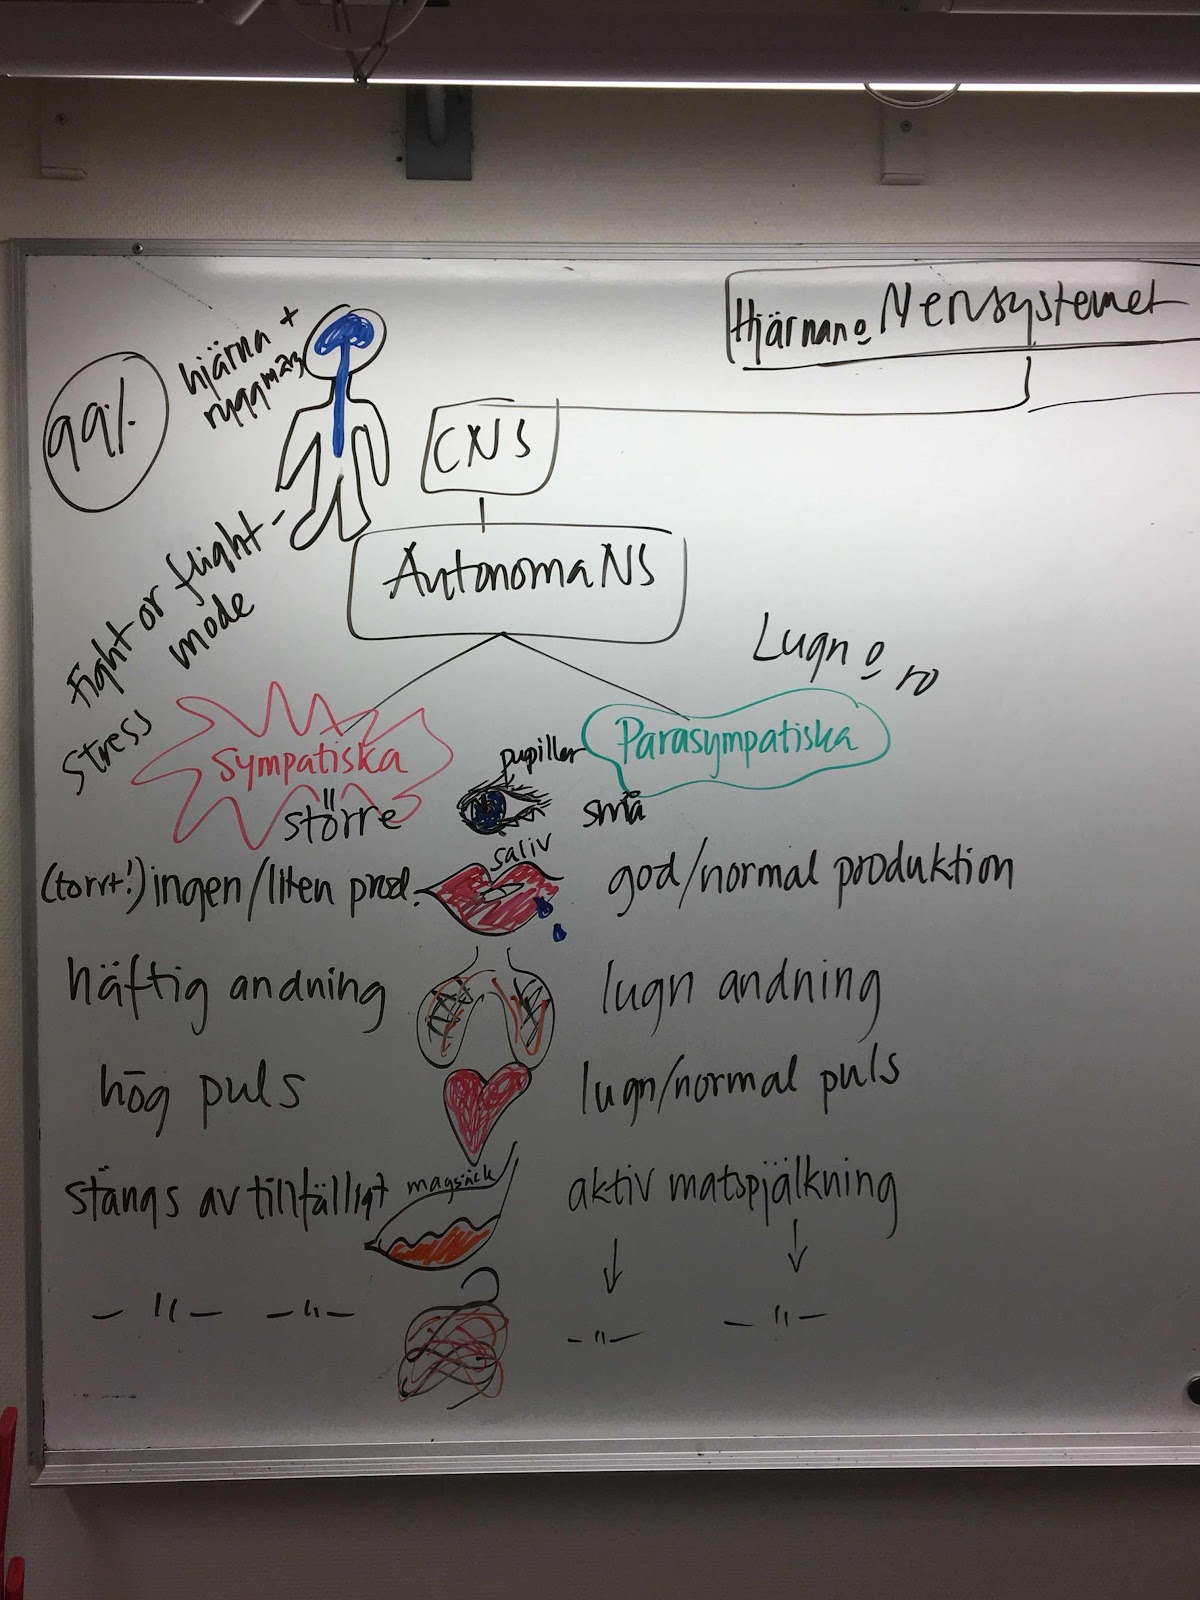 Hjärnan o Nervsystemet
99%
hjärna +
ryggmärg
CNS
Autonoma NS
Fight or flight -
mode
Stress
Lugn o ro
Sympatiska
Parasympatiska
större
pupiller
små
saliv
(torrt!) ingen/liten prod.
god/normal produktion
häftig andning
lugn andning
hög puls
lugn/normal puls
stängs av tillfälligt
magsäck
aktiv matspjälkning
— " — — " —
— " — — " —